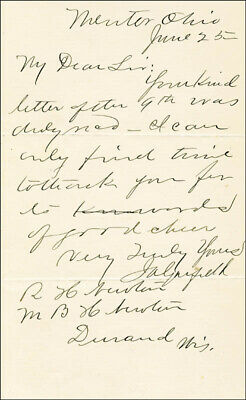 Mentor, Ohio
June 25
My Dear Sir:
Your Kind
letter of the 9th was
duly rec'd – I can
only find time
to thank you for
words
of good cheer
Very Truly Yours
JAGarfield
R H Newton
M B H Newton
Durand Wis.